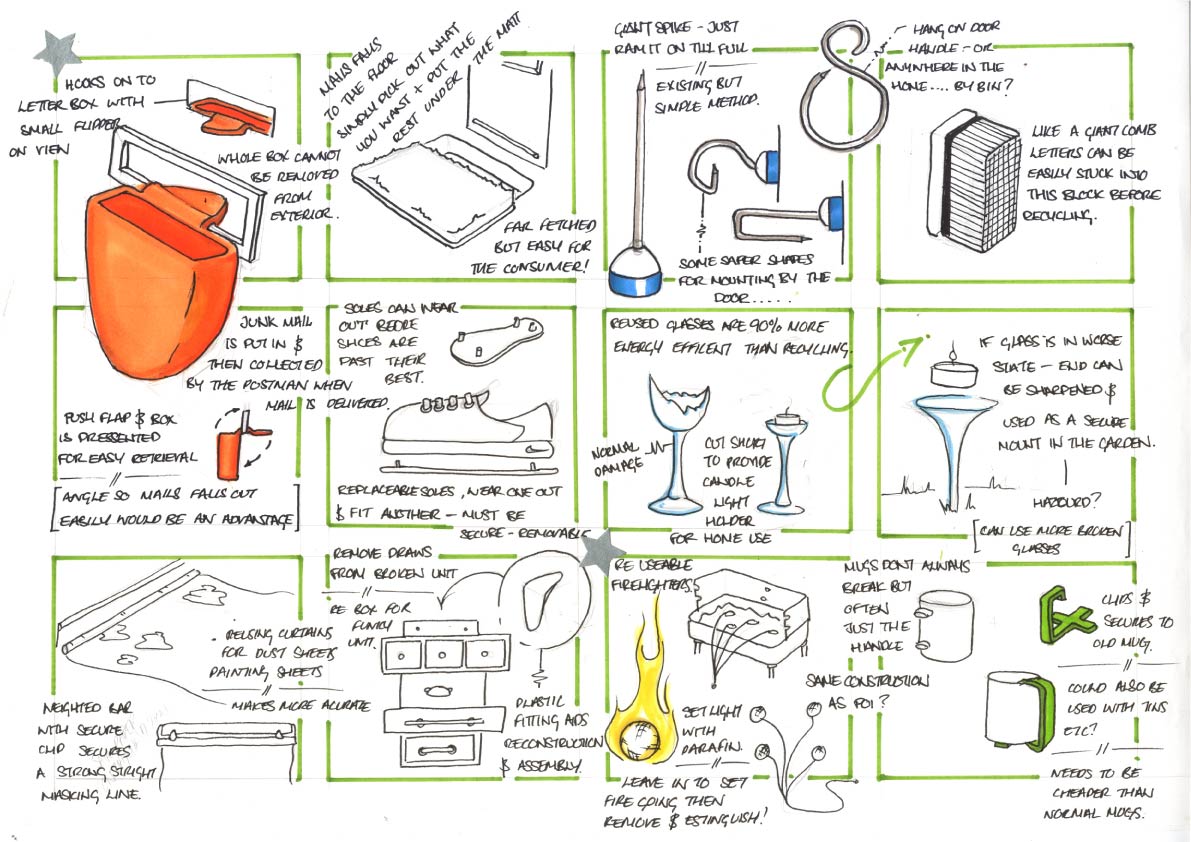 HOOKS ON TO
LETTER BOX WITH
SMALL FLIPPER
ON VIEW
WHOLE BOX CANNOT
BE REMOVED
FROM
EXTERIOR.
JUNK MAIL
IS PUT IN &
THEN COLLECTED
BY THE POSTMAN WHEN
MAIL IS DELIVERED.
PUSH FLAP & BOX
IS PRESSENTED
FOR EASY RETRIEVAL
[ANGLE SO MAILS FALLS OUT
EASILY WOULD BE AN ADVANTAGE]
MAILS FALLS
TO THE FLOOR
SIMPLY PICK OUT WHAT
YOU WANT + PUT THE
REST UNDER THE MATT
FAR FETCHED
BUT EASY FOR
THE CONSUMER!
GIANT SPIKE - JUST
RAM IT ON TILL FULL
EXISTING BUT
SIMPLE METHOD.
SOME SAFER SHAPES
FOR MOUNTING BY THE
DOOR.....
HANG ON DOOR
HANDLE - OR
ANYWHERE IN THE
HOME.... BY BIN?
LIKE A GIANT COMB
LETTERS CAN BE
EASILY STUCK INTO
THIS BLOCK BEFORE
RECYCLING.
SOLES CAN WEAR
OUT BEFORE
SHOES ARE
PAST THEIR
BEST.
REPLACEABLE SOLES, WEAR ONE OUT
& FIT ANOTHER - MUST BE
SECURE - REMOVABLE
REUSED GLASSES ARE 90% MORE
ENERGY EFFICENT THAN RECYCLING.
NORMAL
DAMAGE
CUT SHORT
TO PROVIDE
CANDLE
LIGHT
HOLDER
FOR HOME USE
IF GLASS IS IN WORSE
STATE - END CAN
BE SHARPENED &
USED AS A SECURE
MOUNT IN THE GARDEN.
HAZOURD?
[CAN USE MORE BROKEN
GLASSES]
REUSING CURTAINS
FOR DUST SHEETS
PAINTING SHEETS
MAKES MORE ACURATE
WEIGHTED BAR
WITH SECURE
CLIP SECURES
A STRONG STRIGHT
MASKING LINE.
REMOVE DRAWS
FROM BROKEN UNIT
RE BOX FOR
FUNKY
UNIT.
PLASTIC
FITTING AIDS
RECONSTRUCTION
& ASSEMBLY.
RE USEABLE
FIRELIGHTERS.
SET LIGHT
WITH
PARAFIN.
LEAVE IN TO SET
FIRE GOING THEN
REMOVE & ESTINGUISH!
SAME CONSTRUCTION
AS POI?
MUGS DONT ALWAYS
BREAK BUT
OFTEN
JUST THE
HANDLE
CLIPS &
SECURES TO
OLD MUG.
COULD ALSO BE
USED WITH TINS
ETC?
NEEDS TO BE
CHEAPER THAN
NORMAL MUGS.